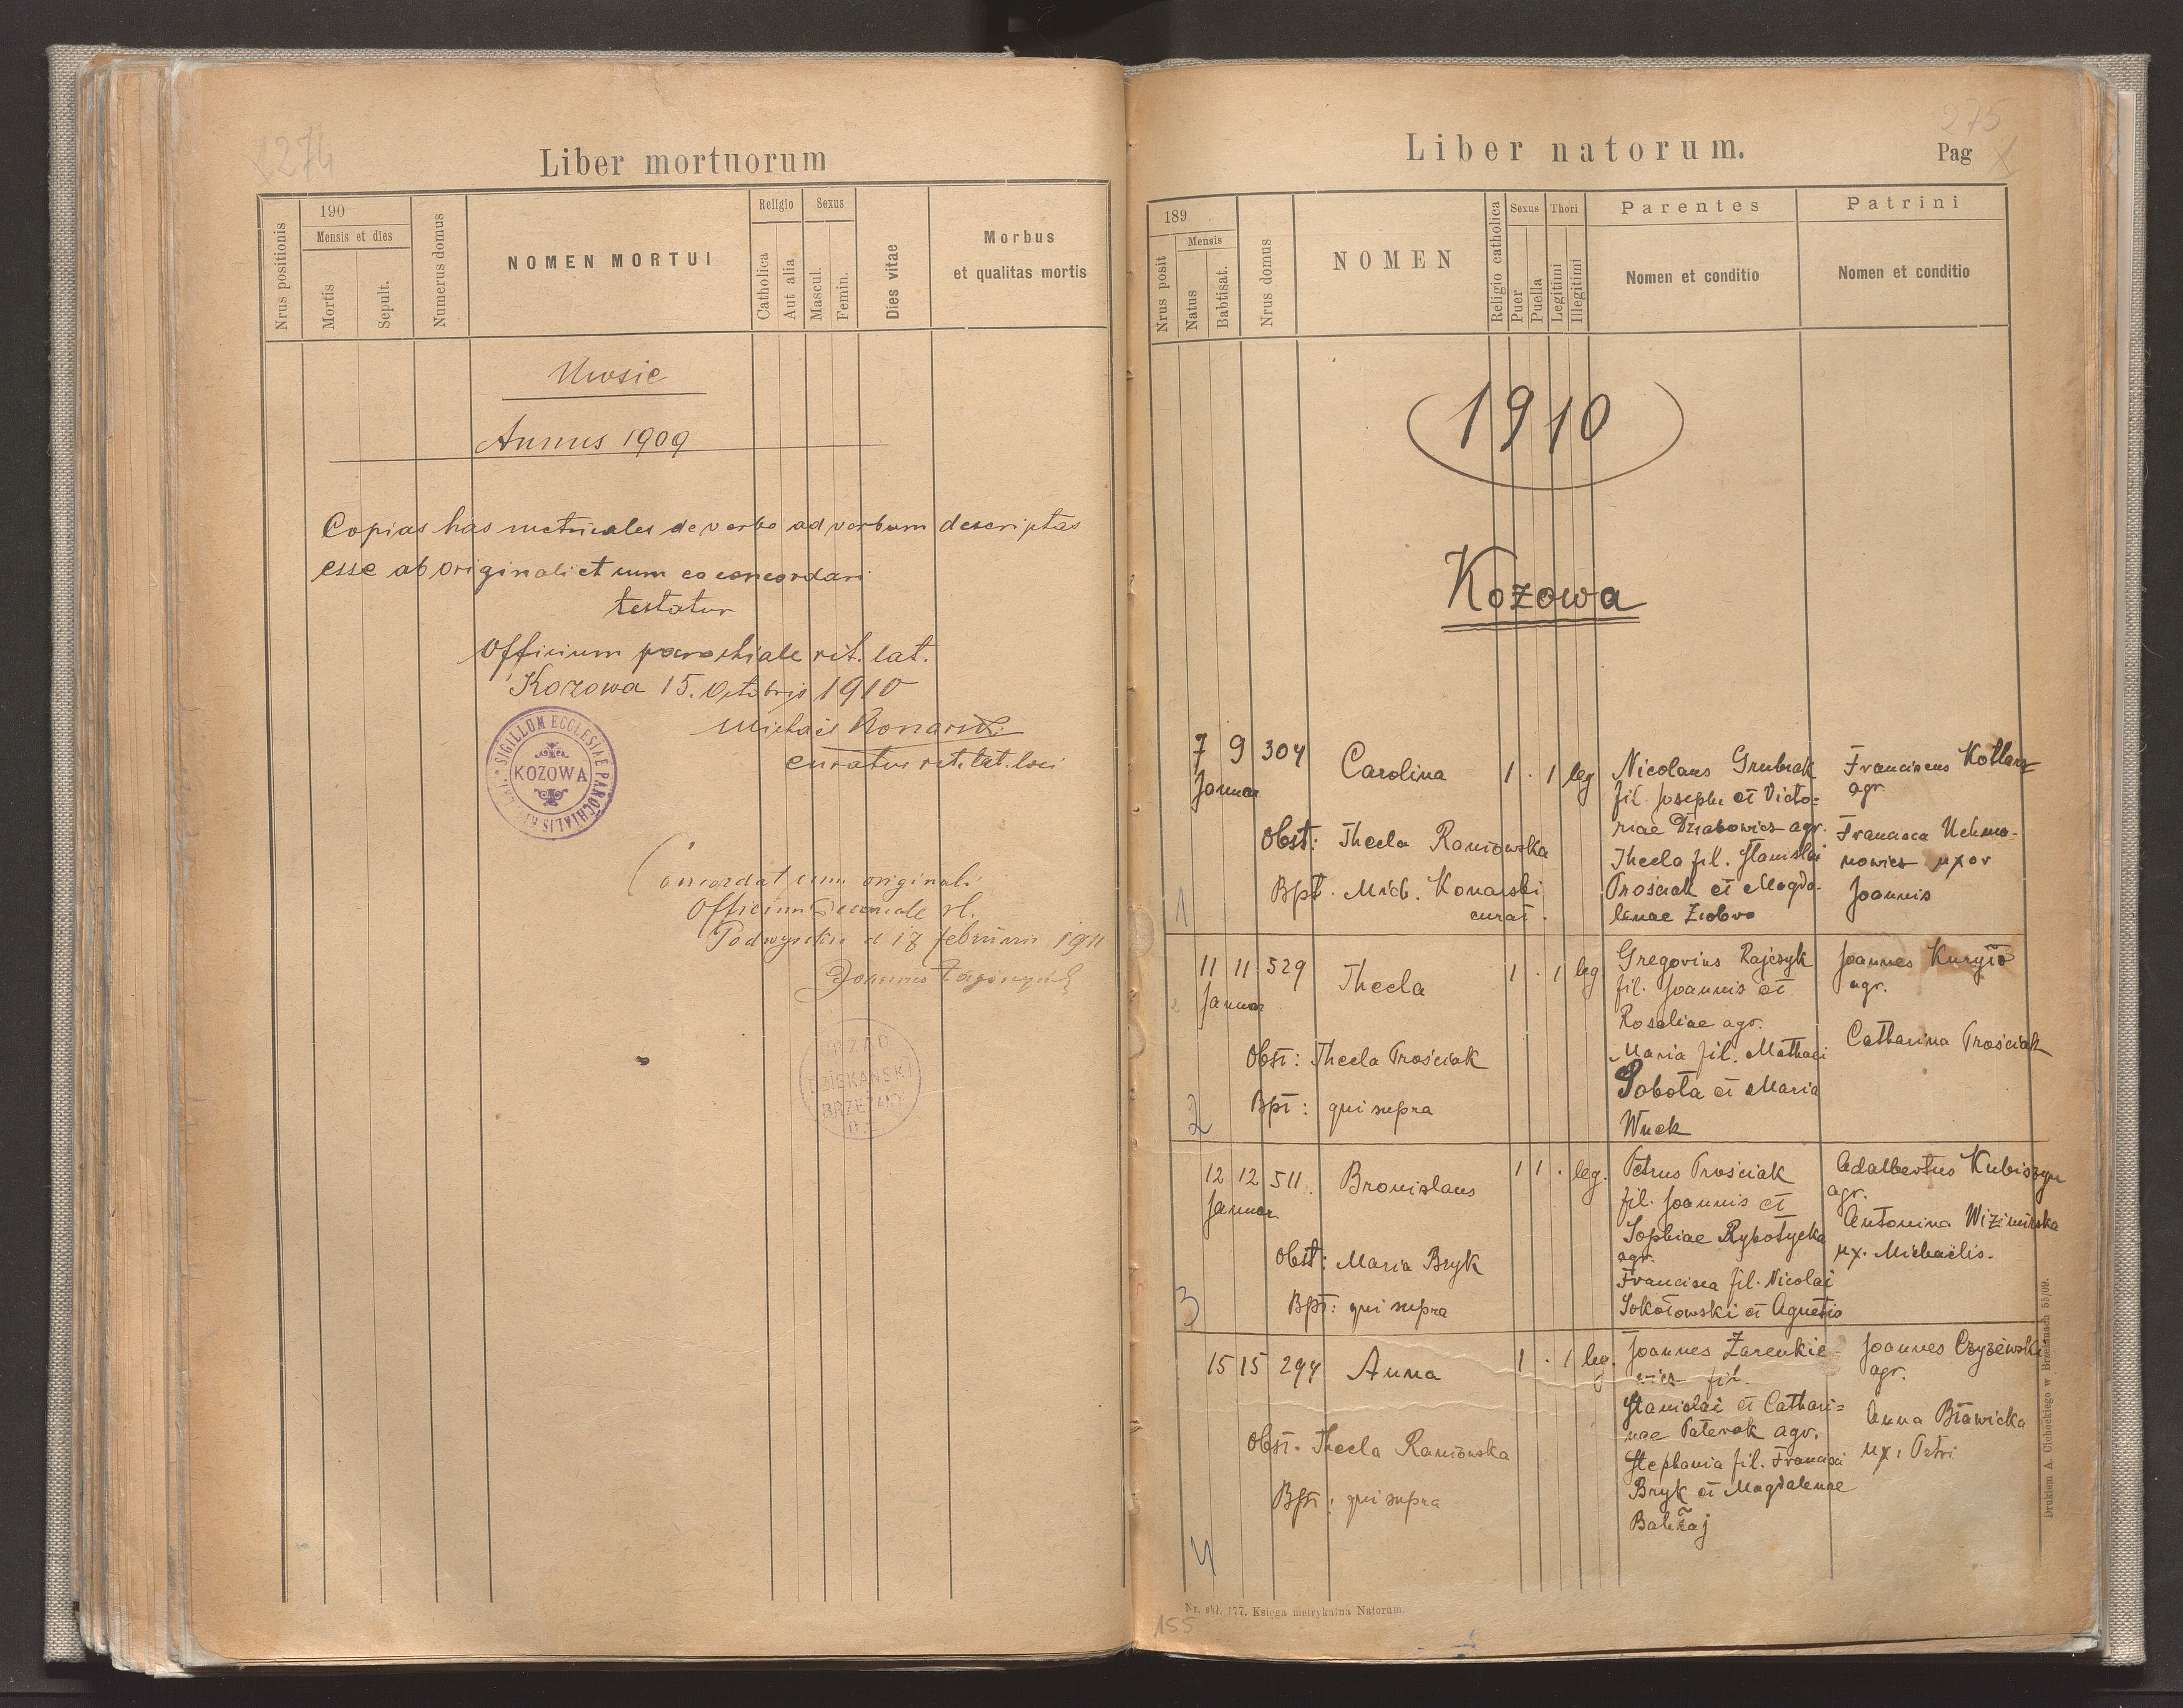 274
Liber mortuorum
Nrus positionis
190
Mensis et dies
Mortis
Sepult.
Numerus domus
NOMEN MORTUI
Religio
Catholica
Aut alia
Sexus
Mascul.
Femin.
Dies vitae
Morbus
et qualitas mortis
Uwsie
Annus 1909
Copias has metricales de verbo ad verbum descriptas
esse ab originali et cum eo concordari
testatur
Officium parochiale rit. lat.
Kozowa 15. Octobris 1910
Michael Konarski
curatus rit. lat. loci
SIGILLUM ECCLESIAE PAROCHIALIS RIT. LAT.
KOZOWA
Concordat cum originali
Officium Decanale rl.
d 17 februarii 1911
Joannes
URZĄD
DZIEKAŃSKI
BRZEŻANY
O. Ł.
275
Liber natorum.
Pag
189
Nrus posit
Mensis
Natus
Babtisat.
Nrus domus
NOMEN
Religio catholica
Sexus
Puer
Puella
Thori
Legitimi
Illegitimi
Parentes
Nomen et conditio
Patrini
Nomen et conditio
1910
Kozowa
7 9 304 Carolina 1 · 1 leg Nicolaus Grubiak Franciscus Kotlarz
Januar fil. Josephi et Victo= agr
riae Drabowicz agr. Francisca Uchma-
Obst: Thecla Raniowska Thecla fil. Stanislai nowicz uxor
Bpt. Mich. Konarski Prościak et Magda- Joannis
1 curat. lenae Ziobro
11 11 529 Thecla 1 · 1 leg Gregorius Rajczyk Joannes Kuryło
2 Januar fil. Joannis et agr.
Rosaliae agr.
Obst: Thecla Prościak Maria fil. Mathaei Catharina Prościak
Bpt: qui supra Sobota et Maria
2 Wnek
12 12 511. Bronislaus 1 1 · leg. Petrus Prościak Adalbertus Kubiszyn
Januar fil. Joannis et agr.
Sophiae Rybotycka Antonina Wizimirska
agr. ux. Michaëlis.
Obst: Maria Bryk Francisca fil. Nicolai
3 Bpt: qui supra Sokołowski et Agnetis
15 15 294 Anna 1 · 1 leg. Joannes Zarenkie- Joannes Czyżewski
wicz fil. agr.
Stanislai et Cathari=
nae Paterak agr. Anna Bławicka
Obst. Thecla Raniowska Stephania fil. Francisci ux. Petri
Bpt: qui supra Bryk et Magdalenae
4
Nr. skł. 177. Księga metrykalna Natorum.
155
Drukiem A. Ciebockiego w Brzeżanach 55/09.